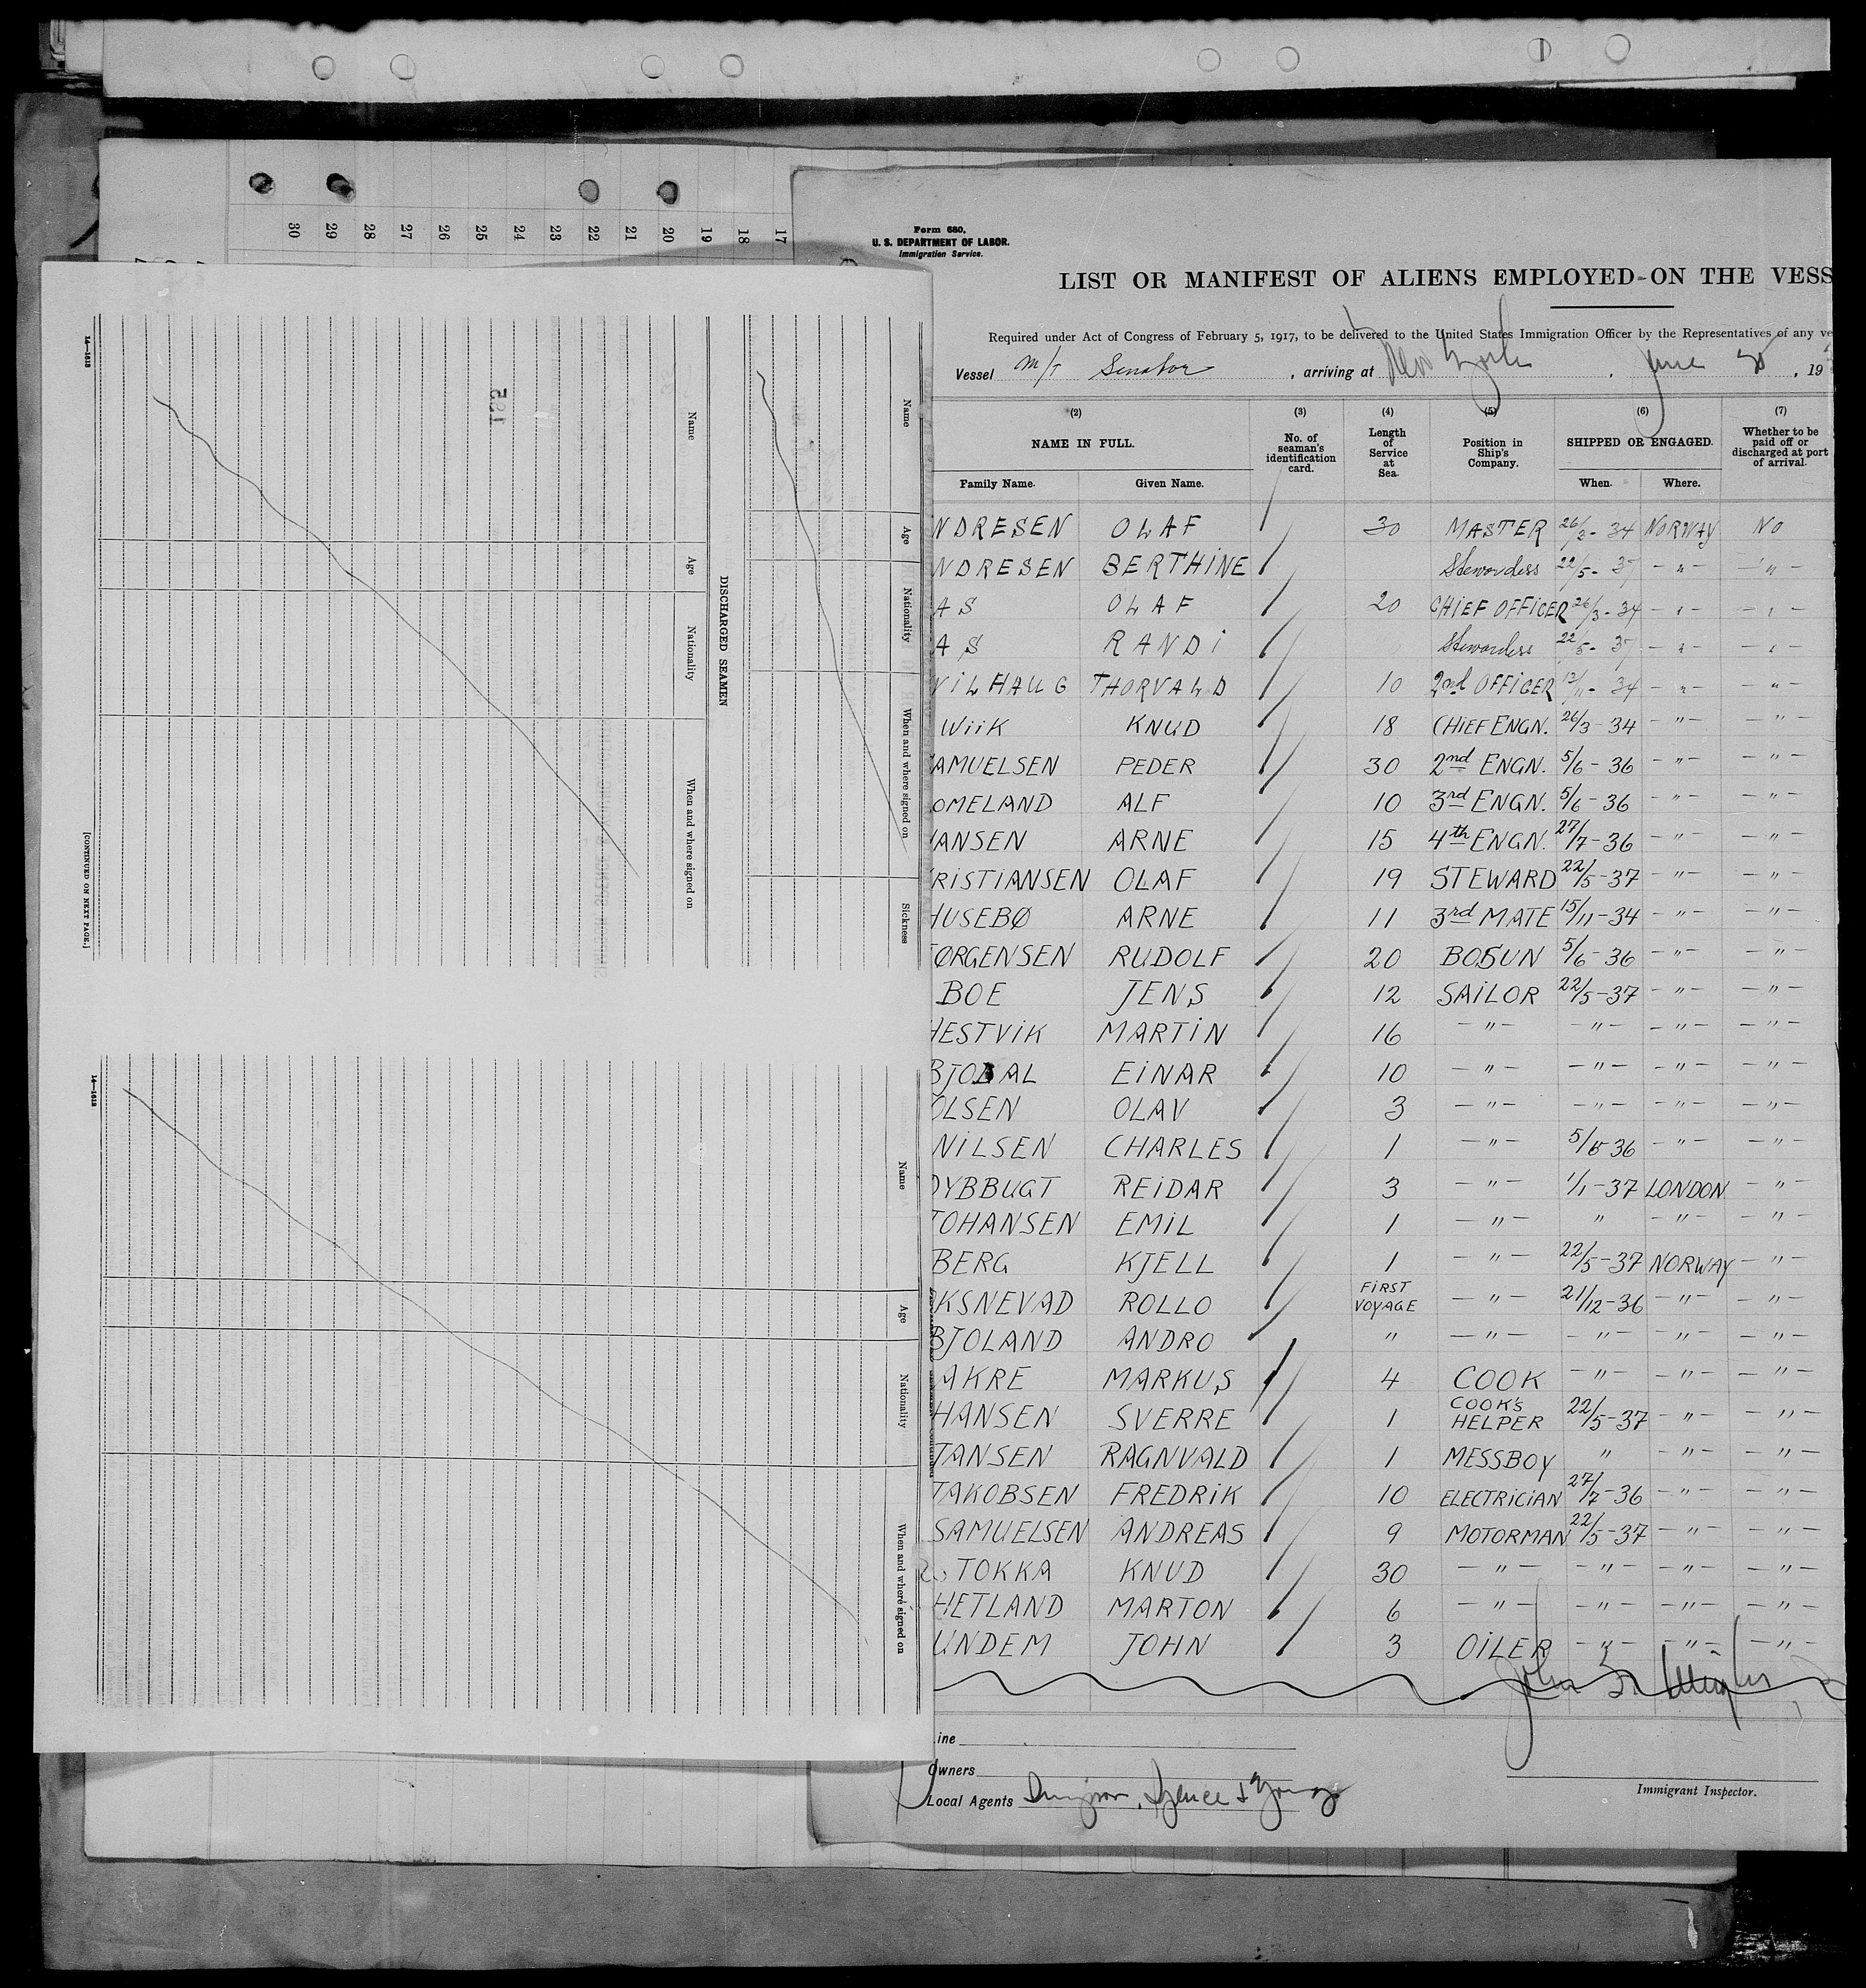 30 29 28 27 26 25 24 23 22 21 20 19 18 17
Form 680.
U. S. DEPARTMENT OF LABOR.
Immigration Service.
LIST OR MANIFEST OF ALIENS EMPLOYED ON THE VESS
Required under Act of Congress of February 5, 1917, to be delivered to the United States Immigration Officer by the Representatives of any ve
Vessel M/T Senator, arriving at New York, June , 19
(2) (3) (4) (5) (6) (7)
NAME IN FULL. No. of seaman's identification card. Length of Service at Sea. Position in Ship's Company. SHIPPED OR ENGAGED. Whether to be paid off or discharged at port of arrival.
Family Name. Given Name. When. Where.
NDRESEN OLAF 30 MASTER 26/3-34 NORWAY NO
NDRESEN BERTHINE Stewardess 22/5-37 -"- -"-
AS OLAF 20 CHIEF OFFICER 26/3-34 -"- -"-
AS RANDI Stewardess 22/5-37 -"- -"-
VILHAUG THORVALD 10 2nd OFFICER 13/11-34 -"- -"-
WIIK KNUD 18 CHIEF ENGN. 26/3-34 -"- -"-
AMUELSEN PEDER 30 2nd ENGN. 5/6-36 -"- -"-
OMELAND ALF 10 3rd ENGN. 5/6-36 -"- -"-
HANSEN ARNE 15 4th ENGN. 27/7-36 -"- -"-
RISTIANSEN OLAF 19 STEWARD 22/5-37 -"- -"-
HUSEBØ ARNE 11 3rd MATE 15/11-34 -"- -"-
JØRGENSEN RUDOLF 20 BOSUN 5/6-36 -"- -"-
BOE JENS 12 SAILOR 22/5-37 -"- -"-
HESTVIK MARTIN 16 -"- -"- -"- -"-
BJODAL EINAR 10 -"- -"- -"- -"-
OLSEN OLAV 3 -"- -"- -"- -"-
NILSEN CHARLES 1 -"- 36 -"- -"-
DYBBUGT REIDAR 3 -"- 1/1-37 LONDON -"-
JOHANSEN EMIL 1 -"- " -"- -"-
BERG KJELL 1 -"- 22/5-37 NORWAY -"-
KSNEVAD ROLLO FIRST VOYAGE -"- 21/12-36 -"- -"-
BJOLAND ANDRO " -"- -"- -"- -"-
AKRE MARKUS 4 COOK -"- -"- -"-
HANSEN SVERRE 1 COOK'S HELPER 22/5-37 -"- -"-
JANSEN RAGNVALD 1 MESSBOY " -"- -"-
JAKOBSEN FREDRIK 10 ELECTRICIAN 27/7-36 -"- -"-
SAMUELSEN ANDREAS 9 MOTORMAN 22/5-37 -"- -"-
TOKKA KNUD 30 -"- -"- -"- -"-
HETLAND MARTON 6 -"- -"- -"- -"-
UNDEM JOHN 3 OILER -"- -"- -"-
John
ine
Owners
Local Agents Spence & Young
Immigrant Inspector.
Name Age Nationality When and where signed on Sickness
DISCHARGED SEAMEN
Name Age Nationality When and where signed on
195
14—1613
[CONTINUED ON NEXT PAGE.]
Name Age Nationality When and where signed on
14—1613